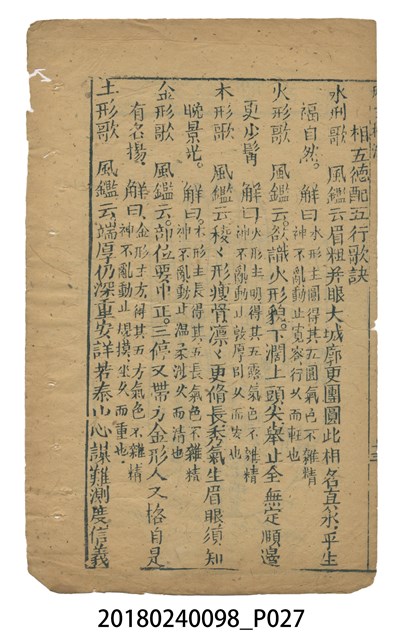 相五德配五行歌訣
水形歌　風鑑云眉粗并眼大城廓更團圓此相名真水平生
福自然。　解曰水形主圓得其五圓氣色不雜精
神不亂動止寬容行久而輕也
火形歌　風鑑云欲識火形貌。下濶上頭尖舉止全無定順邊
更少髯　解曰火形主明得其五露氣色不雜精
神不亂動止敦厚臥久而安也
木形歌　風鑑云稜々形瘦骨凛々更脩長秀氣生眉眼須知
晚景光。　解曰木形主長得其五長氣色不雜精
神不亂動止溫柔涉久而清也
金形歌　風鑑云部位要中正。三停又帶方金形人又格自是
有名揚　解曰金形主方得其五方氣色不雜精
神不亂動止規摸坐久而重也
土形歌　風鑑云端厚仍深重安詳若泰山心謀難測度信義
20180240098_P027